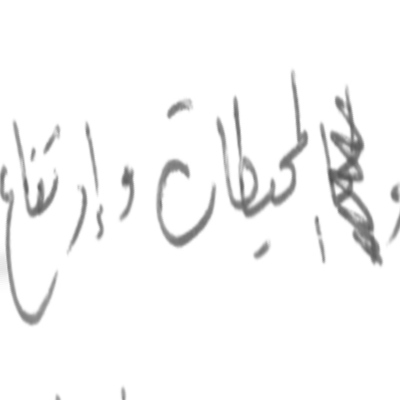 و المحيطات وإرتفاع